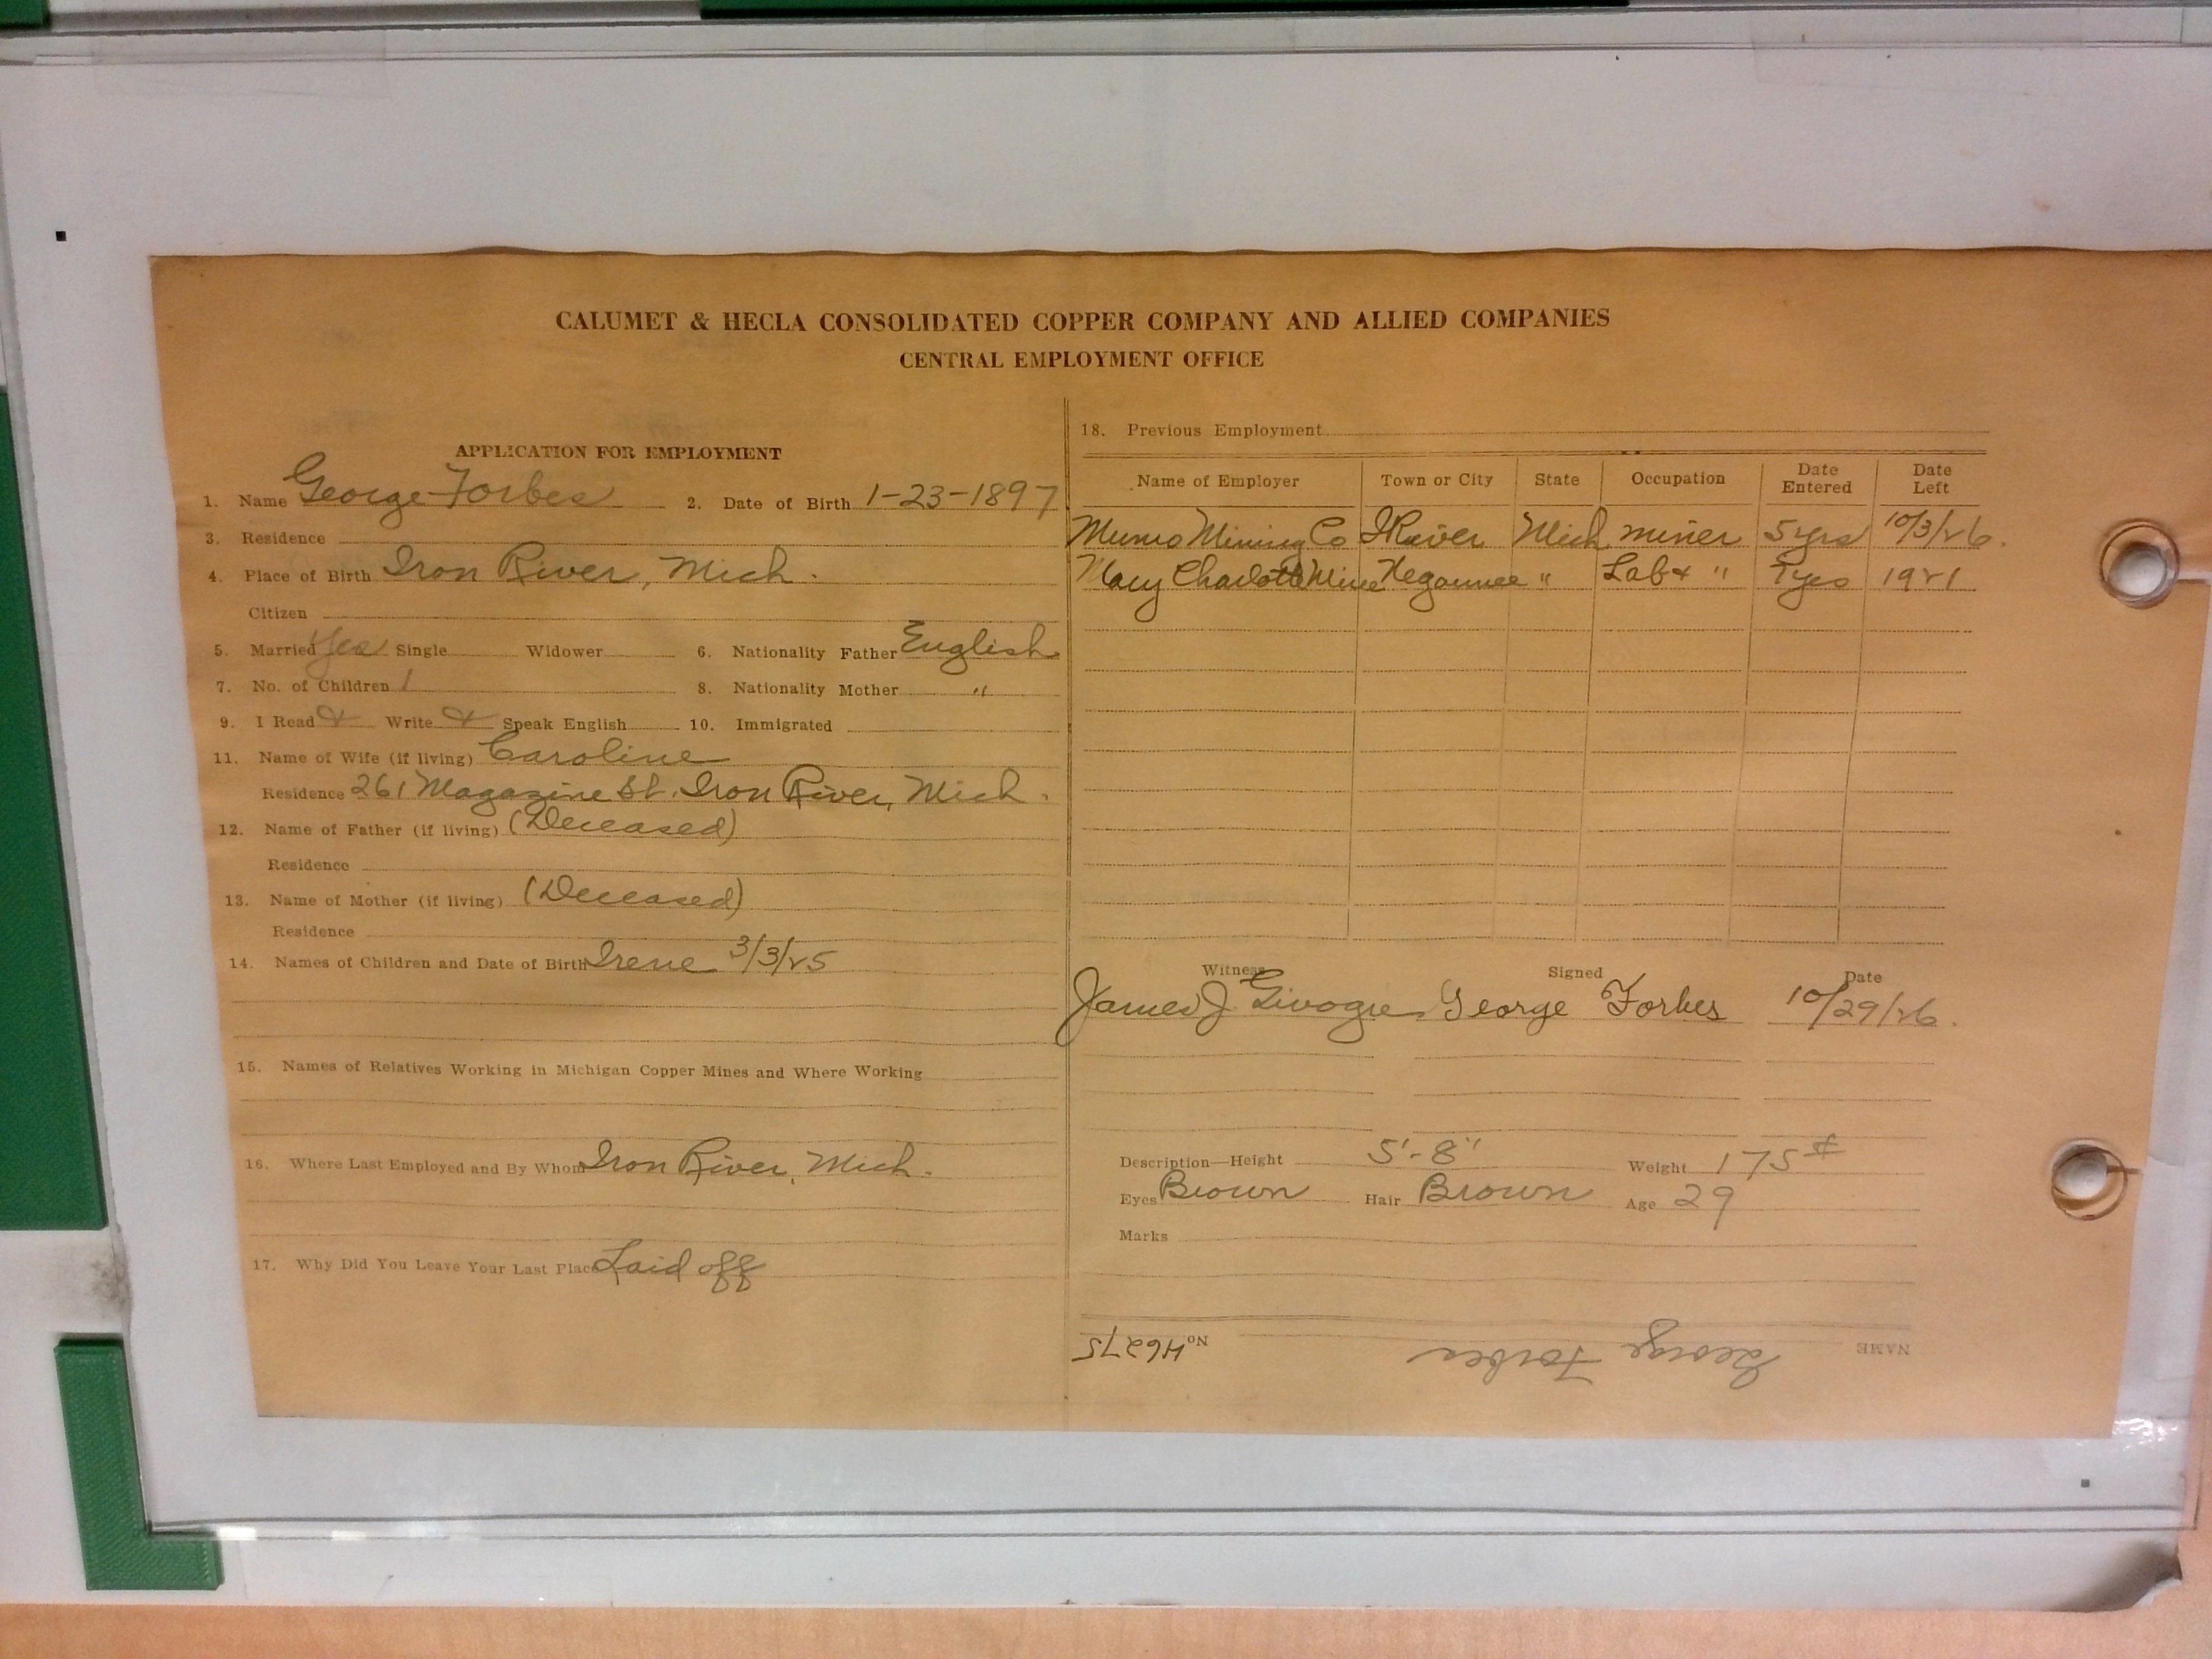 CALUMET & HECLA CONSOLIDATED COPPER COMPANY AND ALLIED COMPANIES
CENTRAL EMPLOYMENT OFFICE
APPLICATION FOR EMPLOYMENT
1. Name George Forbes 2. Date of Birth 1-23-1897
3. Residence
4. Place of Birth Iron River, Mich.
Citizen
5. Married Yes Single Widower 6. Nationality Father English
7. No. of Children 1 8. Nationality Mother "
9. I Read & Write & Speak English 10. Immigrated
11. Name of Wife (if living) Caroline
Residence 261 Magazine St. Iron River, Mich.
12. Name of Father (if living) (Deceased)
Residence
13. Name of Mother (if living) (Deceased)
Residence
14. Names of Children and Date of Birth Irene 3/3/25
15. Names of Relatives Working in Michigan Copper Mines and Where Working
16. Where Last Employed and By Whom Iron River, Mich.
17. Why Did You Leave Your Last Place Laid off
18. Previous Employment
Name of Employer Town or City State Occupation Date Entered Date Left
Munro Mining Co I River Mich miner 5 yrs 10/3/26.
Mary Charlotte Mine Negaunee " Lab & " 1921
Witness Signed Date
James J. George Forbes 10/29/26.
Description—Height 5'-8" Weight 175#
Eyes Brown Hair Brown Age 29
Marks
NAME George Forbes No. H6275